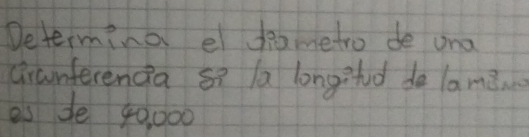 Determina el diametro de una
circunferencia si la longitud de la misma
es de 40,000